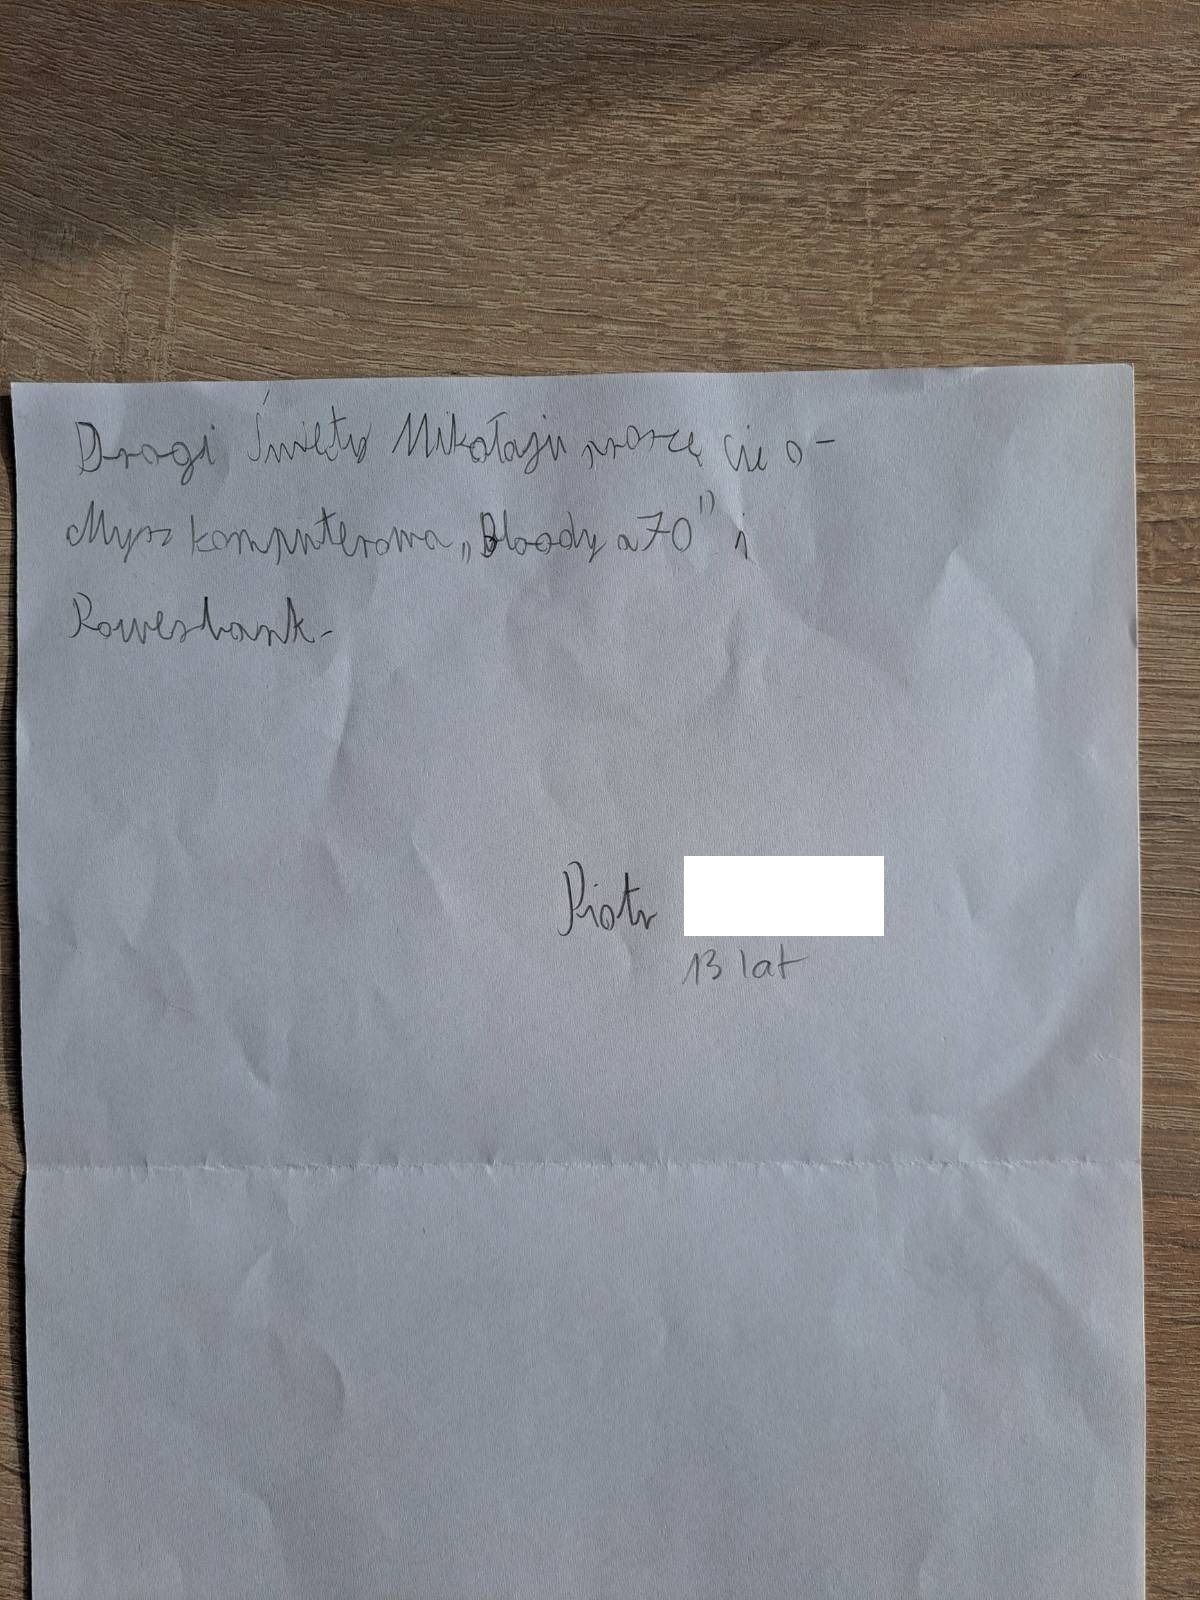 Drogi Święty Mikołaju proszę cie o -
Mysz komputerowa „Bloody a70” i
Powerbank -
Piotr
13 lat